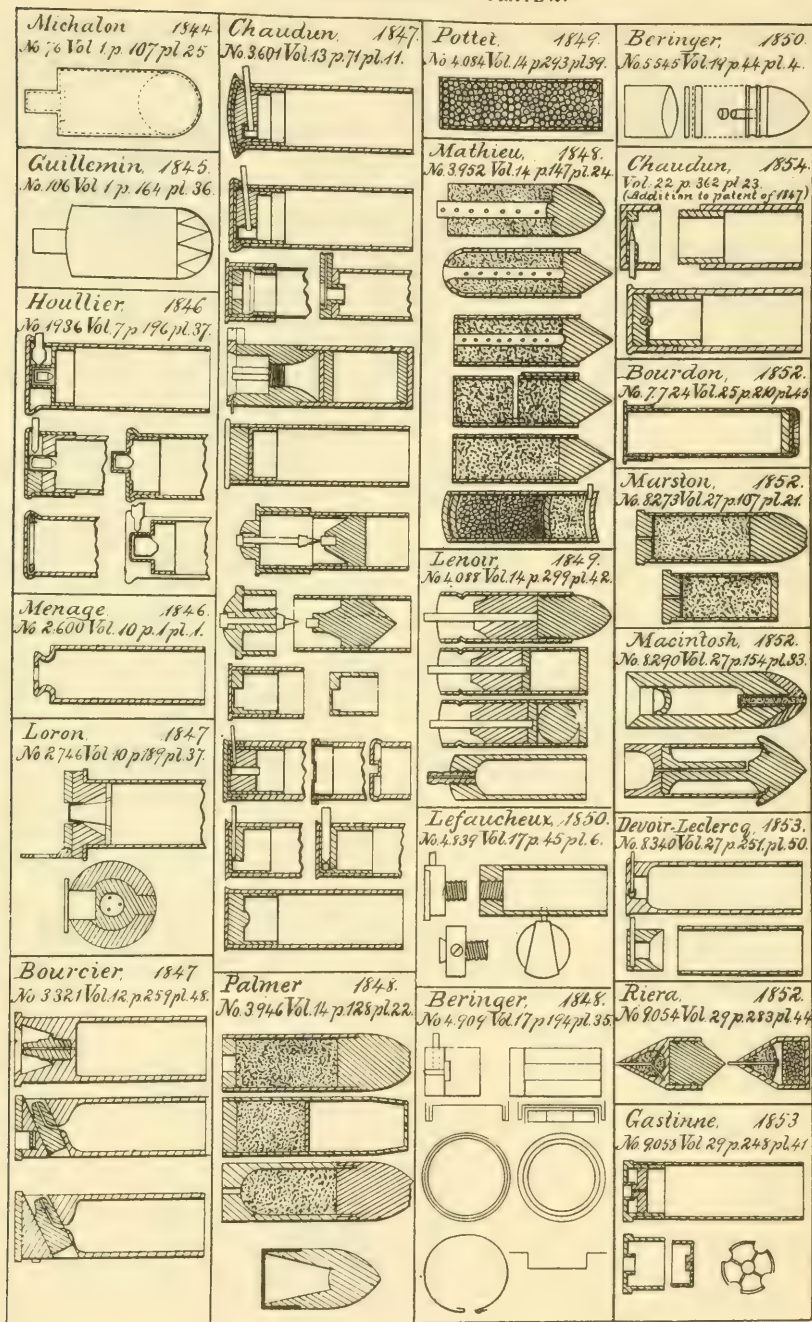 Michalon 1844
No 76 Vol 1 p. 107 pl 25
Guillemin, 1845.
No. 106 Vol 1 p. 164 pl. 36.
Houllier, 1846
No. 1936 Vol. 7 p 196 pl. 37.
Menage, 1846.
No 2.600 Vol. 10 p. 1 pl. 1.
Loron, 1847
No 2.746 Vol 10 p 189 pl. 37.
Bourcier, 1847
No 3.321 Vol. 12 p. 259 pl. 48.
Chaudun, 1847.
No. 3.601 Vol. 13 p. 71 pl. 11.
Palmer 1848.
No. 3.946 Vol. 14 p. 128 pl. 22.
Pottet, 1849.
No 4.084 Vol. 14 p 293 pl 39.
Mathieu, 1848.
No. 3.952 Vol. 14 p 147 pl. 24.
Lenoir, 1849.
No 4.088 Vol. 14 p. 299 pl. 42.
Lefaucheux, 1850.
No. 4.839 Vol. 17 p. 45 pl. 6.
Beringer, 1848.
No 4.909 Vol. 17 p 194 pl. 35.
Beringer, 1850.
No. 5.545 Vol. 19 p. 44 pl. 4.
Chaudun, 1854.
Vol. 22 p. 362 pl 23.
(Addition to patent of 1847)
Bourdon, 1852.
No. 7.724 Vol. 25 p. 210 pl. 45
Marston, 1852.
No. 8273 Vol. 27 p. 107 pl. 21.
Macintosh, 1852.
No. 8.290 Vol. 27 p. 154 pl. 33.
Devoir-Leclercq, 1853.
No. 8.340 Vol. 27 p. 251. pl. 50.
Riera, 1852.
No 9.054 Vol 29 p. 283 pl. 44
Gastinne, 1853
No. 9.053 Vol 29 p. 248 pl. 41